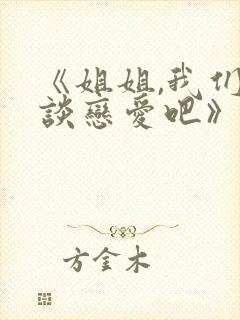 《姐姐,我们
談戀愛吧》
方金木